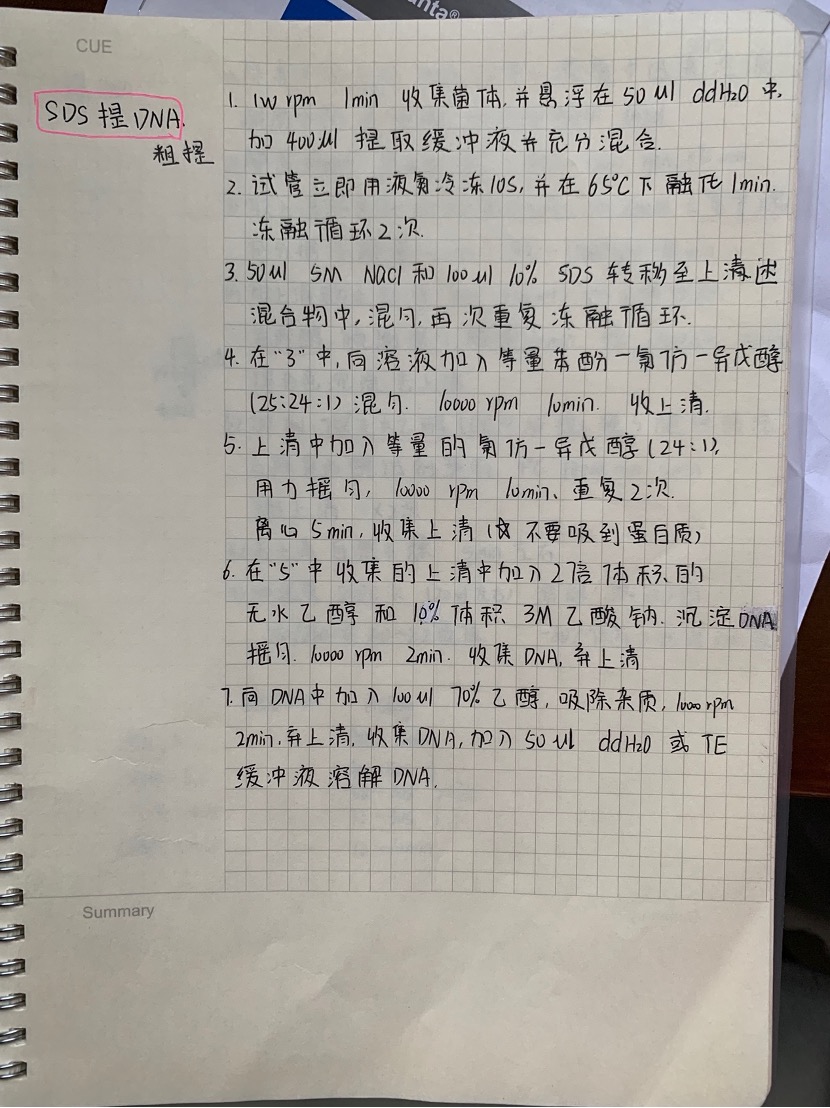 anta®
CUE
SDS 提DNA.
粗提
1. 1W rpm 1min 收集菌体,并悬浮在50μl ddH2O中,
加400μl 提取缓冲液并充分混合.
2. 试管立即用液氮冷冻10S,并在65℃下融化1min.
冻融循环2次.
3. 50μl 5M NaCl和100μl 10% SDS 转移至上清述
混合物中,混匀,再次重复冻融循环.
4. 在“3”中,向溶液加入等量苯酚-氯仿-异戊醇
(25:24:1)混匀. 10000 rpm 10min. 收上清.
5. 上清中加入等量的氯仿-异戊醇(24:1),
用力摇匀, 10000 rpm 10min、重复2次.
离心5min,收集上清(不要吸到蛋白质)
6. 在“5”中收集的上清中加入2倍体积的
无水乙醇和10%体积3M乙酸钠. 沉淀DNA
摇匀. 10000 rpm 2min. 收集DNA,弃上清
7. 向DNA中加入100μl 70%乙醇,吸除杂质, 1000 rpm
2min,弃上清,收集DNA,加入50μl ddH2O或TE
缓冲液溶解DNA.
Summary